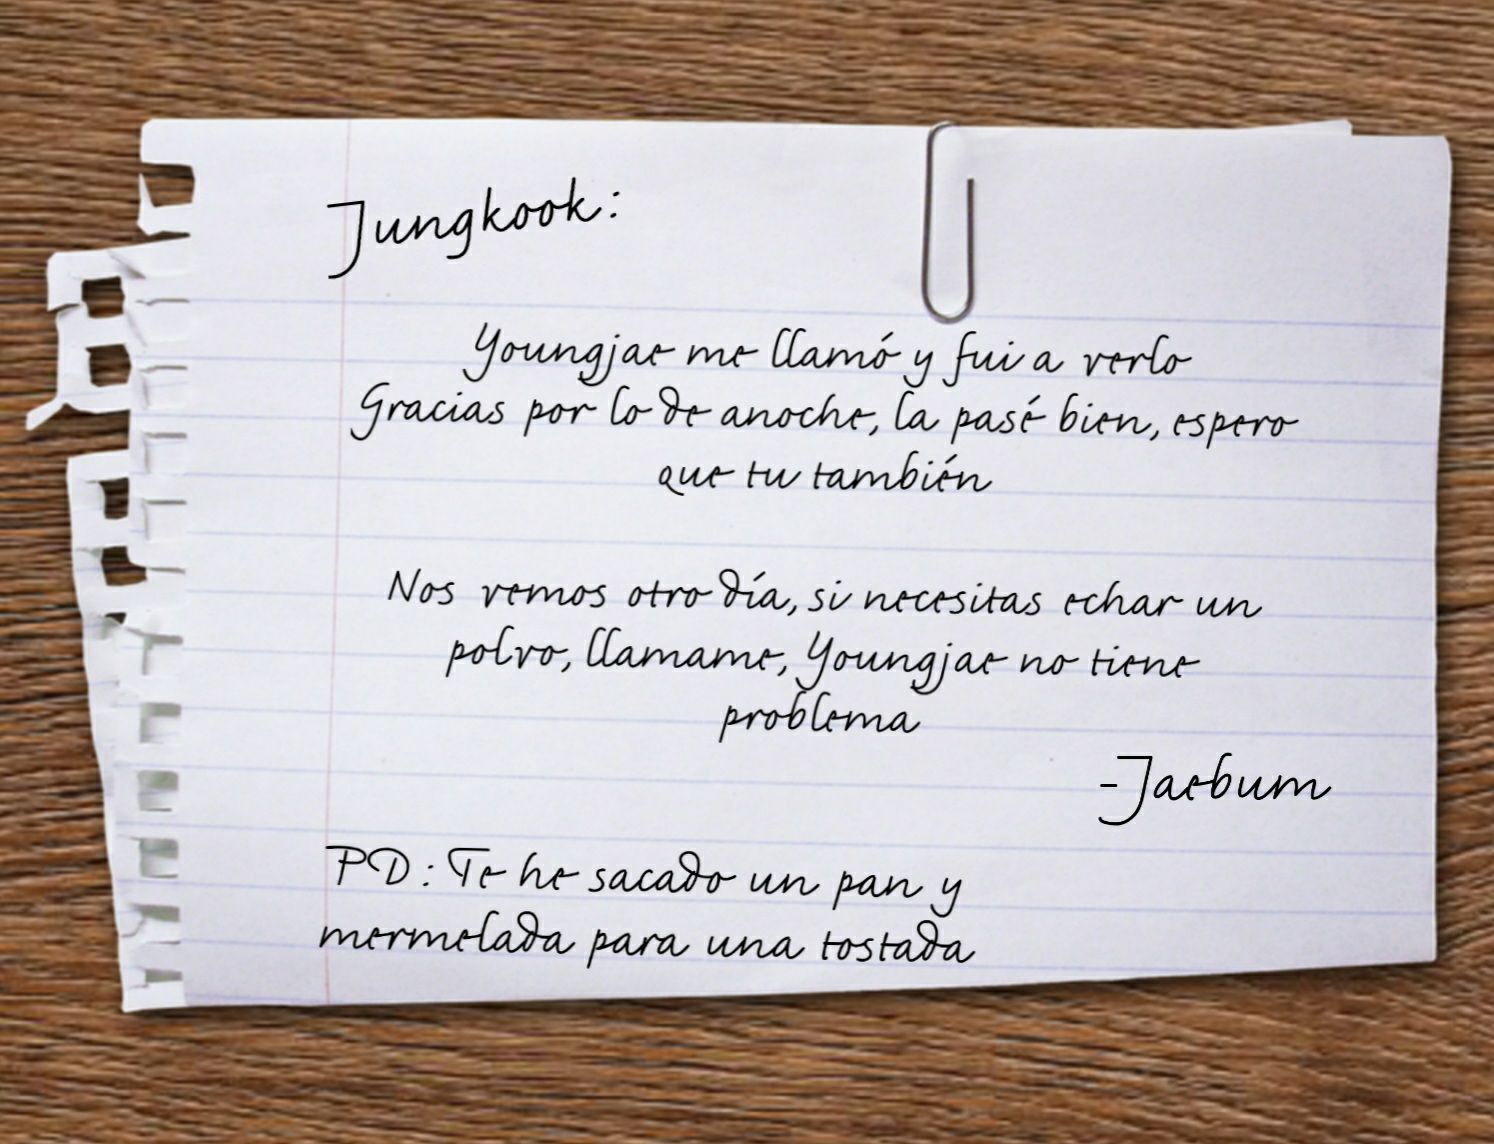 Jungkook:
Youngjae me llamó y fui a verlo
Gracias por lo de anoche, la pasé bien, espero
que tu también
Nos vemos otro día, si necesitas echar un
polvo, llamame, Youngjae no tiene
problema
-Jaebum
PD: Te he sacado un pan y
mermelada para una tostada